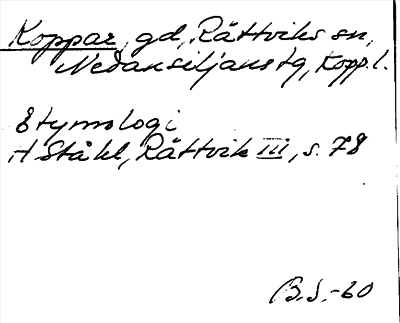 Koppar, gd, Rättviks sn,
Nedansiljans tg, Kopp. l.
Etymologi
H Ståhl, Rättvik III, s. 78
B.S.-60